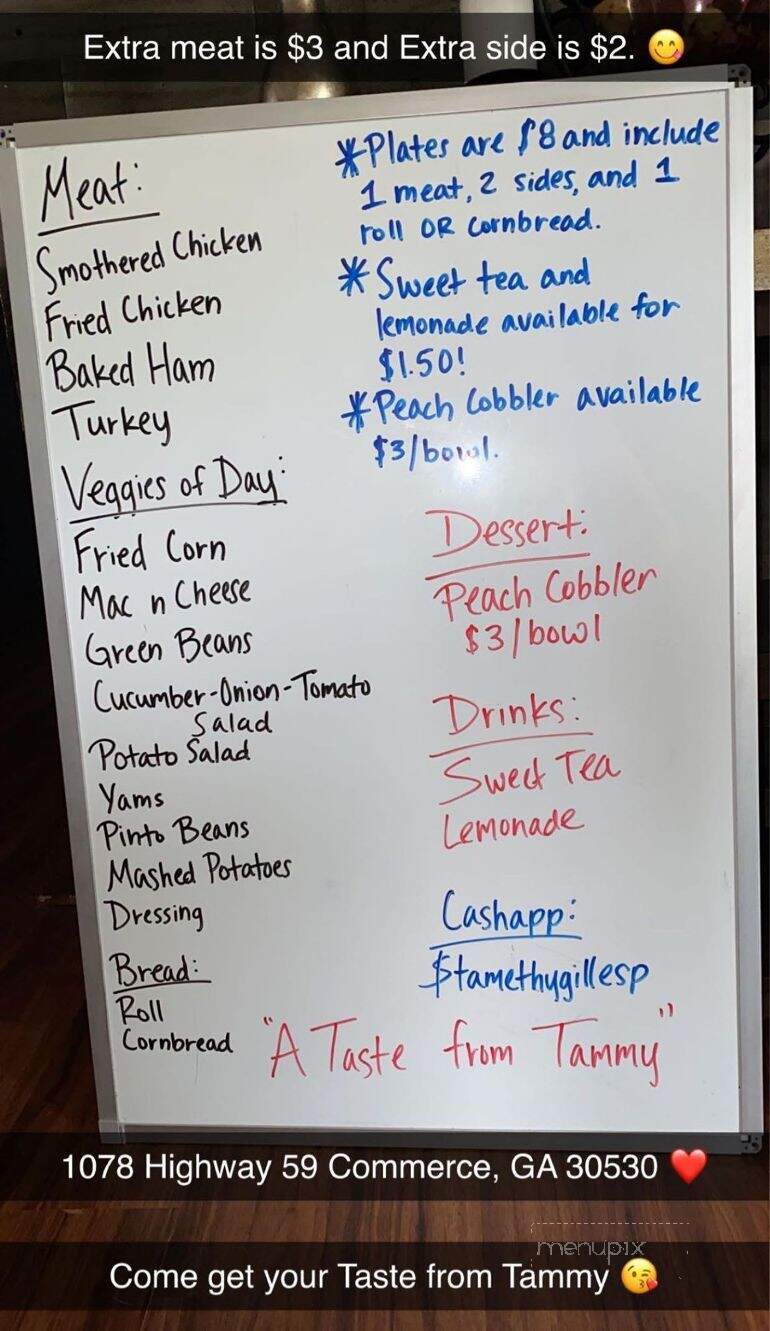 Extra meat is $3 and Extra side is $2. 😋
Meat:
Smothered Chicken
Fried Chicken
Baked Ham
Turkey
Veggies of Day:
Fried Corn
Mac n Cheese
Green Beans
Cucumber-Onion-Tomato
Salad
Potato Salad
Yams
Pinto Beans
Mashed Potatoes
Dressing
Bread:
Roll
Cornbread
*Plates are $8 and include
1 meat, 2 sides, and 1
roll OR Cornbread.
*Sweet tea and
lemonade available for
$1.50!
*Peach Cobbler available
$3/bowl.
Dessert:
Peach Cobbler
$3/bowl
Drinks:
Sweet Tea
Lemonade
Cashapp:
$tamethygillesp
"A Taste from Tammy"
1078 Highway 59 Commerce, GA 30530 ❤️
menupix
Come get your Taste from Tammy 😘